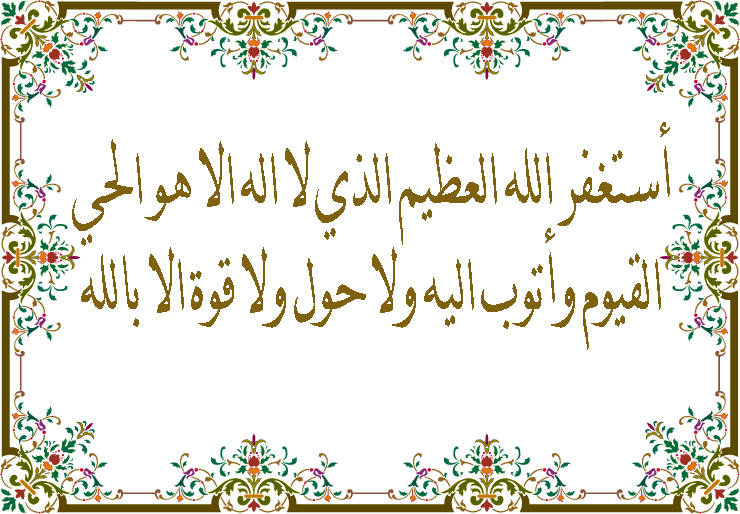 أستغفر الله العظيم الذي لا اله الا هو الحي
القيوم وأتوب اليه ولا حول ولا قوة الا بالله